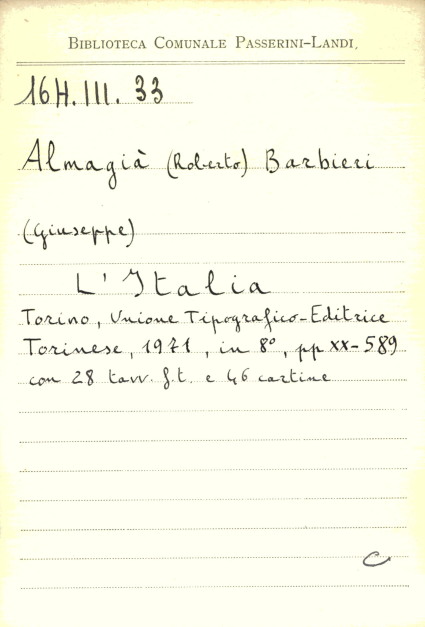 BIBLIOTECA COMUNALE PASSERINI-LANDI
16H.III. 33
Almagià (Roberto) Barbieri
(Giuseppe)
L'Italia
Torino, Unione Tipografico-Editrice
Torinese, 1971, in 8°, pp xx-589
con 28 tavv. f.t. e 46 cartine
C